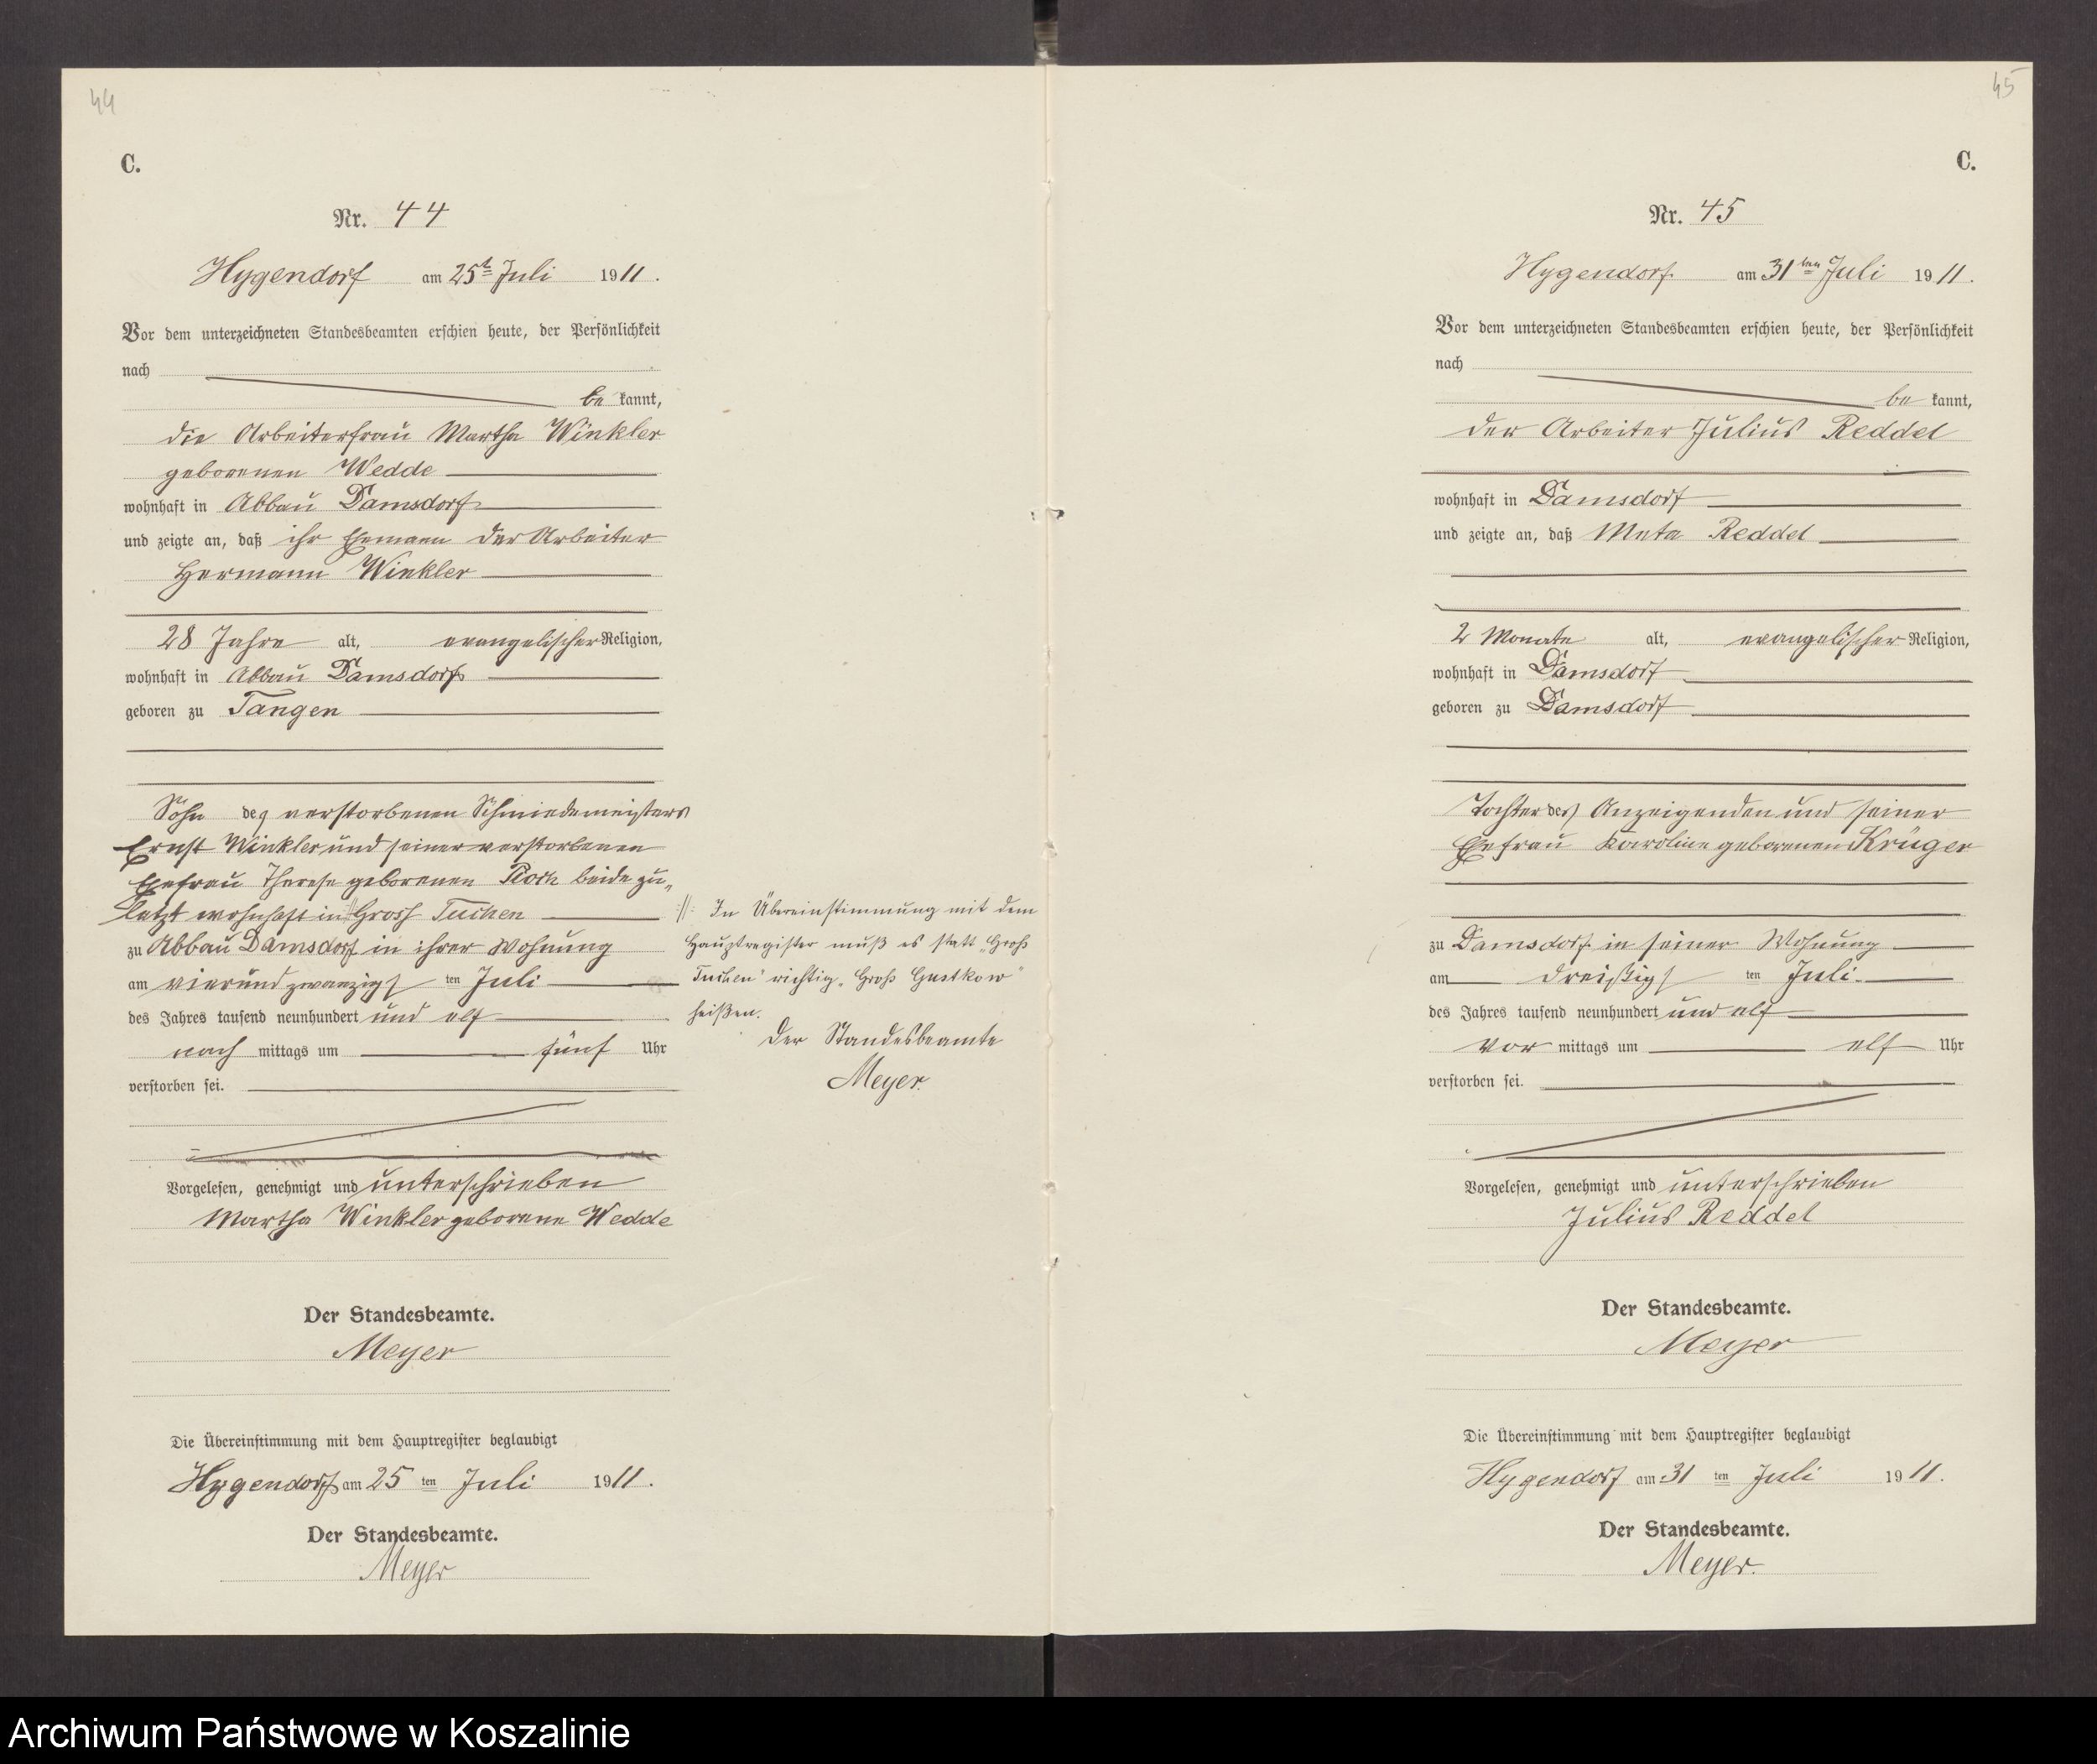 44
C.
Nr. 44
Hygendorf am 25t Juli 1911.
Vor dem unterzeichneten Standesbeamten erschien heute, der Persönlichkeit
nach
be kannt,
die Arbeiterfrau Martha Winkler
geborenen Wedde
wohnhaft in Abbau Damsdorf
und zeigte an, daß ihr Ehemann der Arbeiter
Hermann Winkler
28 Jahre alt, evangelischer Religion,
wohnhaft in Abbau Damsdorf
geboren zu Tangen
Sohn des verstorbenen Schmiedemeisters
Ernst Winkler und seiner verstorbenen
Ehefrau Therese geborenen beide zu„
letzt wohnhaft in Gross Tuchen
zu Abbau Damsdorf in ihrer Wohnung
am vierundzwanzigs ten Juli
des Jahres tausend neunhundert und elf
nach mittags um fünf Uhr
verstorben sei.
Vorgelesen, genehmigt und unterschrieben
Martha Winkler geborene Wedde
Der Standesbeamte.
Meyer
Die Übereinstimmung mit dem Hauptregister beglaubigt
Hygendorf am 25 ten Juli 1911.
Der Standesbeamte.
Meyer
:/: In Übereinstimmung mit dem
Hauptregister muß es statt „Groß
Tuchen" richtig „Groß Gustkow"
heißen.
Der Standesbeamte
Meyer.
45
C.
Nr. 45
Hygendorf am 31ten Juli 1911.
Vor dem unterzeichneten Standesbeamten erschien heute, der Persönlichkeit
nach
be kannt,
der Arbeiter Julius Reddel
wohnhaft in Damsdorf
und zeigte an, daß Meta Reddel
2 Monate alt, evangelischer Religion,
wohnhaft in Damsdorf
geboren zu Damsdorf
Tochter des Anzeigenden und seiner
Ehefrau Karoline geborenen Krüger
zu Damsdorf in seiner Wohnung
am dreißigs ten Juli
des Jahres tausend neunhundert und elf
vor mittags um elf Uhr
verstorben sei.
Vorgelesen, genehmigt und unterschrieben
Julius Reddel
Der Standesbeamte.
Meyer
Die Übereinstimmung mit dem Hauptregister beglaubigt
Hygendorf am 31 ten Juli 1911.
Der Standesbeamte.
Meyer.
Archiwum Państwowe w Koszalinie